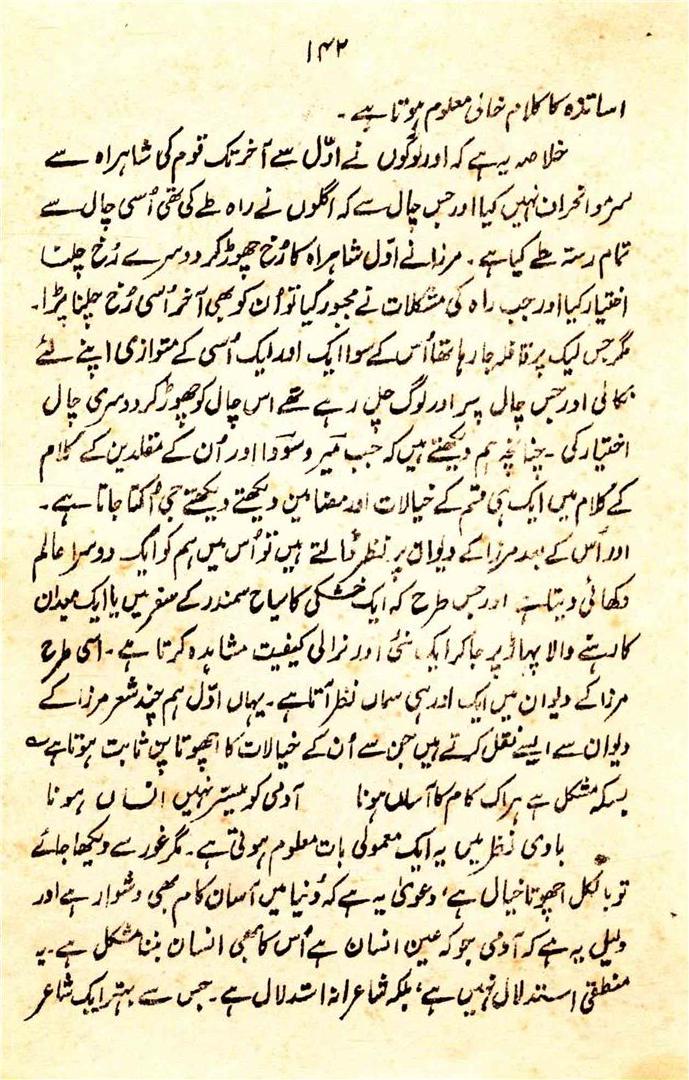 ۱۴۲
اساتذہ کا کلام خالی معلوم ہوتا ہے۔
خلاصہ یہ ہے کہ اور لوگوں نے اوّل سے آخر تک قوم کی شاہراہ سے
سرمو انحراف نہیں کیا اور جس چال سے کہ اگلوں نے راہ طے کی تھی اُسی چال سے
تمام رستہ طے کیا ہے۔ مرزا نے اوّل شاہراہ کا رُخ چھوڑ کر دوسرے رُخ چلنا
اختیار کیا اور جب راہ کی مشکلات نے مجبور کیا تو اُن کو بھی آخر اُسی رُخ چلنا پڑا۔
مگر جس لیک پر قافلہ جا رہا تھا اُس کے سوا ایک اور لیک اُسی کے متوازی اپنے لئے
نکالی اور جس چال پر اور لوگ چل رہے تھے اس چال کو چھوڑ کر دوسری چال
اختیار کی۔ چنانچہ ہم دیکھتے ہیں کہ جب میر و سودا اور اُن کے مقلدین کے کلام
کے کلام میں ایک ہی قسم کے خیالات اور مضامین دیکھتے دیکھتے جی اُکتا جاتا ہے۔
اور اُس کے بعد مرزا کے دیوان پر نظر ڈالتے ہیں تو اُس میں ہم کو ایک دوسرا عالم
دکھائی دیتا ہے اور جس طرح کہ ایک خشکی کا سیاح سمندر کے سفر میں یا ایک میدان
کا رہنے والا پہاڑ پر جا کر ایک نئی اور نرالی کیفیت مشاہدہ کرتا ہے۔ اسی طرح
مرزا کے دیوان میں ایک اور ہی سماں نظر آتا ہے۔ یہاں اوّل ہم چند شعر مرزا کے
دیوان سے ایسے نقل کرتے ہیں جن سے اُن کے خیالات کا اچھوتا پن ثابت ہوتا ہے؎
بسکہ مشکل ہے ہر اک کام کا آساں ہونا آدمی کو میسّر نہیں انساں ہونا
بادی نظر میں یہ ایک معمولی بات معلوم ہوتی ہے۔ مگر غور سے دیکھا جائے
تو بالکل اچھوتا خیال ہے، دعویٰ یہ ہے کہ دُنیا میں آسان کام بھی دشوار ہے اور
دلیل یہ ہے کہ آدمی جو کہ عین انسان ہے اُس کا بھی انسان بننا مشکل ہے۔ یہ
منطقی استدلال نہیں ہے، بلکہ شاعرانہ استدلال ہے۔ جس سے بہتر ایک شاعر